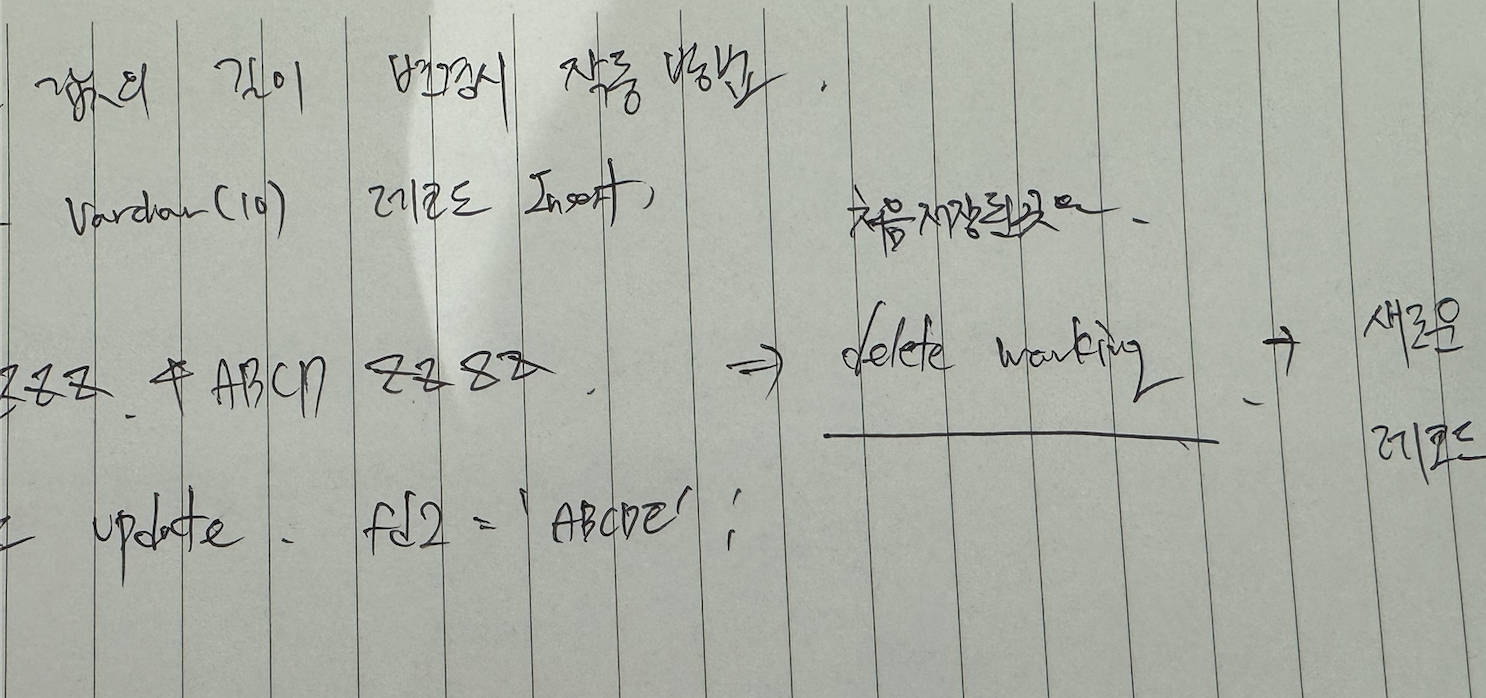 값의 길이 변경시 작동 방법.
- Varchar(10) 레코드 Insert, 처음 저장된 곳은 -
ZZZ. 4 ABCD ZZZZ. ⇒ delete working. → 새로운
레코드
update. fd2 = 'ABCDE' ;